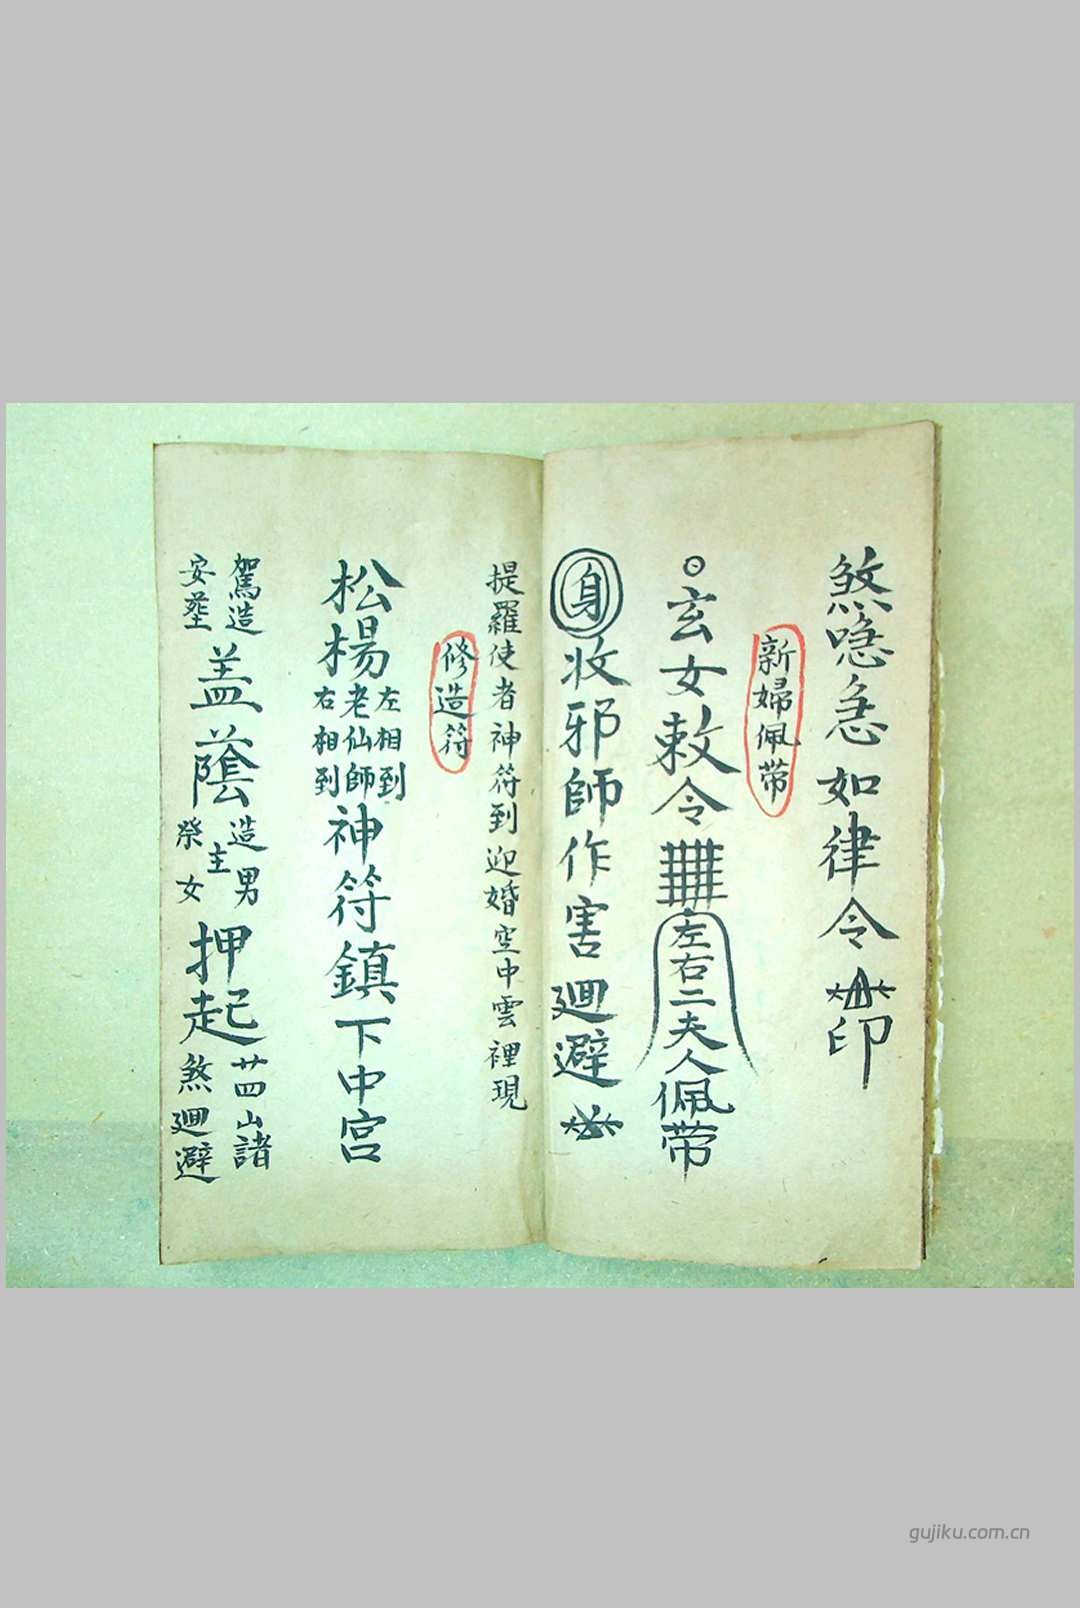 煞唸急如律令
印
新婦佩带
玄女敕令
左右二夫人佩带
身收邪師作害迴避
提羅使者神符到迎婚空中雲裡現
修造符
松楊
左相到
老仙師
右相到
神符鎮下中宫
駕造
安塟
盖蔭
造男
主
癸女
押起
廿四山諸
煞迴避
gujiku.com.cn